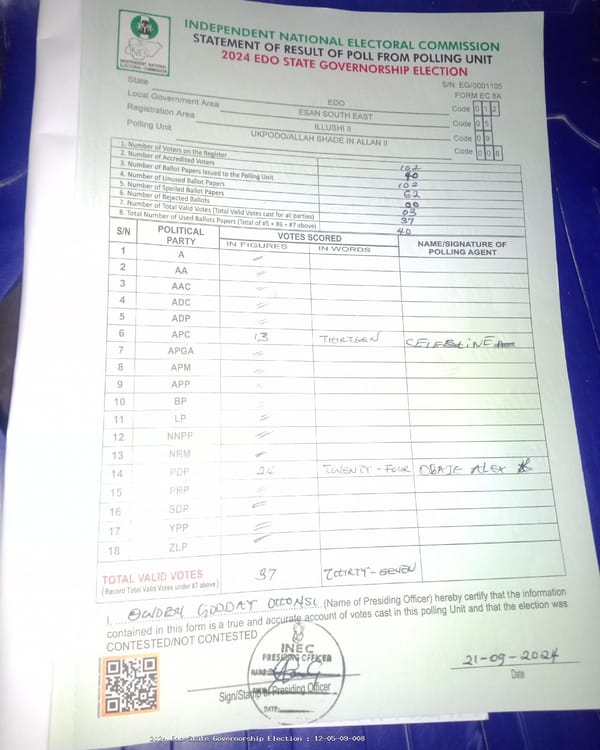 INDEPENDENT NATIONAL ELECTORAL COMMISSION
STATEMENT OF RESULT OF POLL FROM POLLING UNIT
2024 EDO STATE GOVERNORSHIP ELECTION
INEC
INDEPENDENT NATIONAL
ELECTORAL COMMISSION
S/N: EG/0001105
FORM EC 8A
State EDO Code 0 1 2
Local Government Area ESAN SOUTH EAST Code 0 5
Registration Area ILLUSHI II Code 0 9
Polling Unit UKPODO/ALLAH SHADE IN ALLAN II Code 0 0 8
1. Number of Voters on the Register 102
2. Number of Accredited Voters 40
3. Number of Ballot Papers Issued to the Polling Unit 102
4. Number of Unused Ballot Papers 62
5. Number of Spoiled Ballot Papers 00
6. Number of Rejected Ballots 03
7. Number of Total Valid Votes (Total Valid Votes cast for all parties) 37
8. Total Number of Used Ballots Papers (Total of #5 + #6 + #7 above) 40
S/N POLITICAL PARTY VOTES SCORED NAME/SIGNATURE OF POLLING AGENT
IN FIGURES IN WORDS
1 A
2 AA
3 AAC
4 ADC
5 ADP
6 APC 13 THIRTEEN CELESTINE
7 APGA
8 APM
9 APP
10 BP
11 LP
12 NNPP
13 NRM
14 PDP 24 TWENTY-FOUR OBAJE ALEX
15 PRP
16 SDP
17 YPP
18 ZLP
TOTAL VALID VOTES 37 THIRTY-SEVEN
(Record Total Valid Votes under #7 above)
I, GOODAY (Name of Presiding Officer) hereby certify that the information
contained in this form is a true and accurate account of votes cast in this polling Unit and that the election was
CONTESTED/NOT CONTESTED
INEC
PRESIDING OFFICER
NAME
DATE:
Sign/Stamp of Presiding Officer
21-09-2024
Date
2024 Edo State Governorship Election : 12-05-09-008